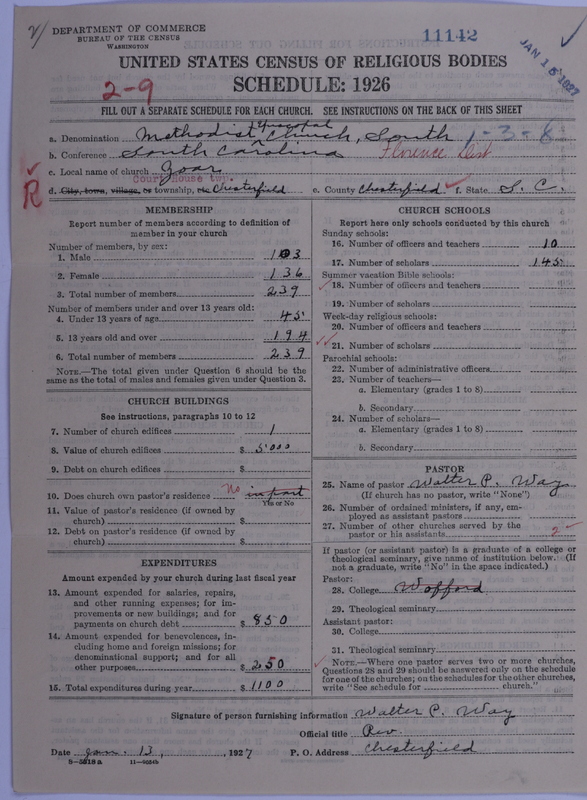 DEPARTMENT OF COMMERCE
BUREAU OF THE CENSUS
WASHINGTON
11142
JAN 15 1927
UNITED STATES CENSUS OF RELIGIOUS BODIES
SCHEDULE: 1926
2-9
FILL OUT A SEPARATE SCHEDULE FOR EACH CHURCH. SEE INSTRUCTIONS ON THE BACK OF THIS SHEET
a. Denomination Methodist Episcopal Church, South 1-3-8
b. Conference South Carolina Florence Dist
c. Local name of church
Court House twp.
R
d. City, town, village, or township, etc Chesterfield e. County Chesterfield f. State S. C.
MEMBERSHIP
Report number of members according to definition of
member in your church
Number of members, by sex:
1. Male 103
2. Female 136
3. Total number of members 239
Number of members under and over 13 years old:
4. Under 13 years of age 45
5. 13 years old and over 194
6. Total number of members 239
NOTE.—The total given under Question 6 should be
same as the total of males and females given under Question 3.
CHURCH BUILDINGS
See instructions, paragraphs 10 to 12
7. Number of church edifices 1
8. Value of church edifices $ 5000
9. Debt on church edifices $
10. Does church own pastor's residence No in part
Yes or No
11. Value of pastor's residence (if owned by
church) $
12. Debt on pastor's residence (if owned by
church) $
EXPENDITURES
Amount expended by your church during last fiscal year
13. Amount expended for salaries, repairs,
and other running expenses; for im-
provements or new buildings; and for
payments on church debt $ 850
14. Amount expended for benevolences, in-
cluding home and foreign missions; for
denominational support; and for all
other purposes $ 250
15. Total expenditures during year $ 1100
CHURCH SCHOOLS
Report here only schools conducted by this church
Sunday schools:
16. Number of officers and teachers 10
17. Number of scholars 145
Summer vacation Bible schools:
18. Number of officers and teachers
19. Number of scholars
Week-day religious schools:
20. Number of officers and teachers
21. Number of scholars
Parochial schools:
22. Number of administrative officers
23. Number of teachers—
a. Elementary (grades 1 to 8)
b. Secondary
24. Number of scholars—
a. Elementary (grades 1 to 8)
b. Secondary
PASTOR
25. Name of pastor Walter P. Way
(If church has no pastor, write "None")
26. Number of ordained ministers, if any, em-
ployed as assistant pastors
27. Number of other churches served by the
pastor or his assistants 2
If pastor (or assistant pastor) is a graduate of a college or
theological seminary, give name of institution below. (If
not a graduate, write "No" in the space indicated.)
Pastor:
28. College Wofford
29. Theological seminary
Assistant pastor:
30. College
31. Theological seminary
NOTE.—Where one pastor serves two or more churches,
Questions 28 and 29 should be answered only on the schedule
for one of the churches; on the schedules for the other churches,
write "See schedule for church."
Signature of person furnishing information Walter P. Way
Official title Rev.
Date Jan. 13, 1927 P. O. Address Chesterfield